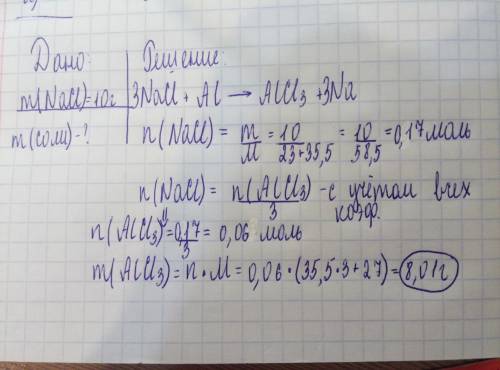 Дано:
Решение:
m(NaCl)=10г
3NaCl + Al → AlCl3 + 3Na
m(соли)-?
n(NaCl) = m/M = 10/23+35,5 = 10/58,5 = 0,17 моль
n(NaCl) = n(AlCl3)/3 - с учётом всех
коэф.
⇓
n(AlCl3) = 0,17/3 = 0,06 моль
m(AlCl3) = n·M = 0,06·(35,5·3+27) = 8,01г